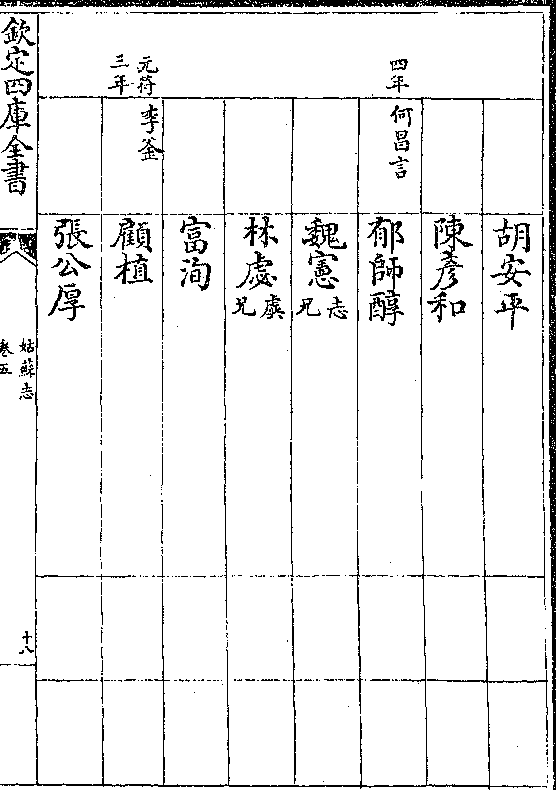 胡安平
陳彥和
四年 何昌言 郁師醇
魏憲 志兄
林虙 虞兄
富洵
元符三年 李釜 顧植
張公厚
欽定四庫全書
姑蘇志
卷五
十八